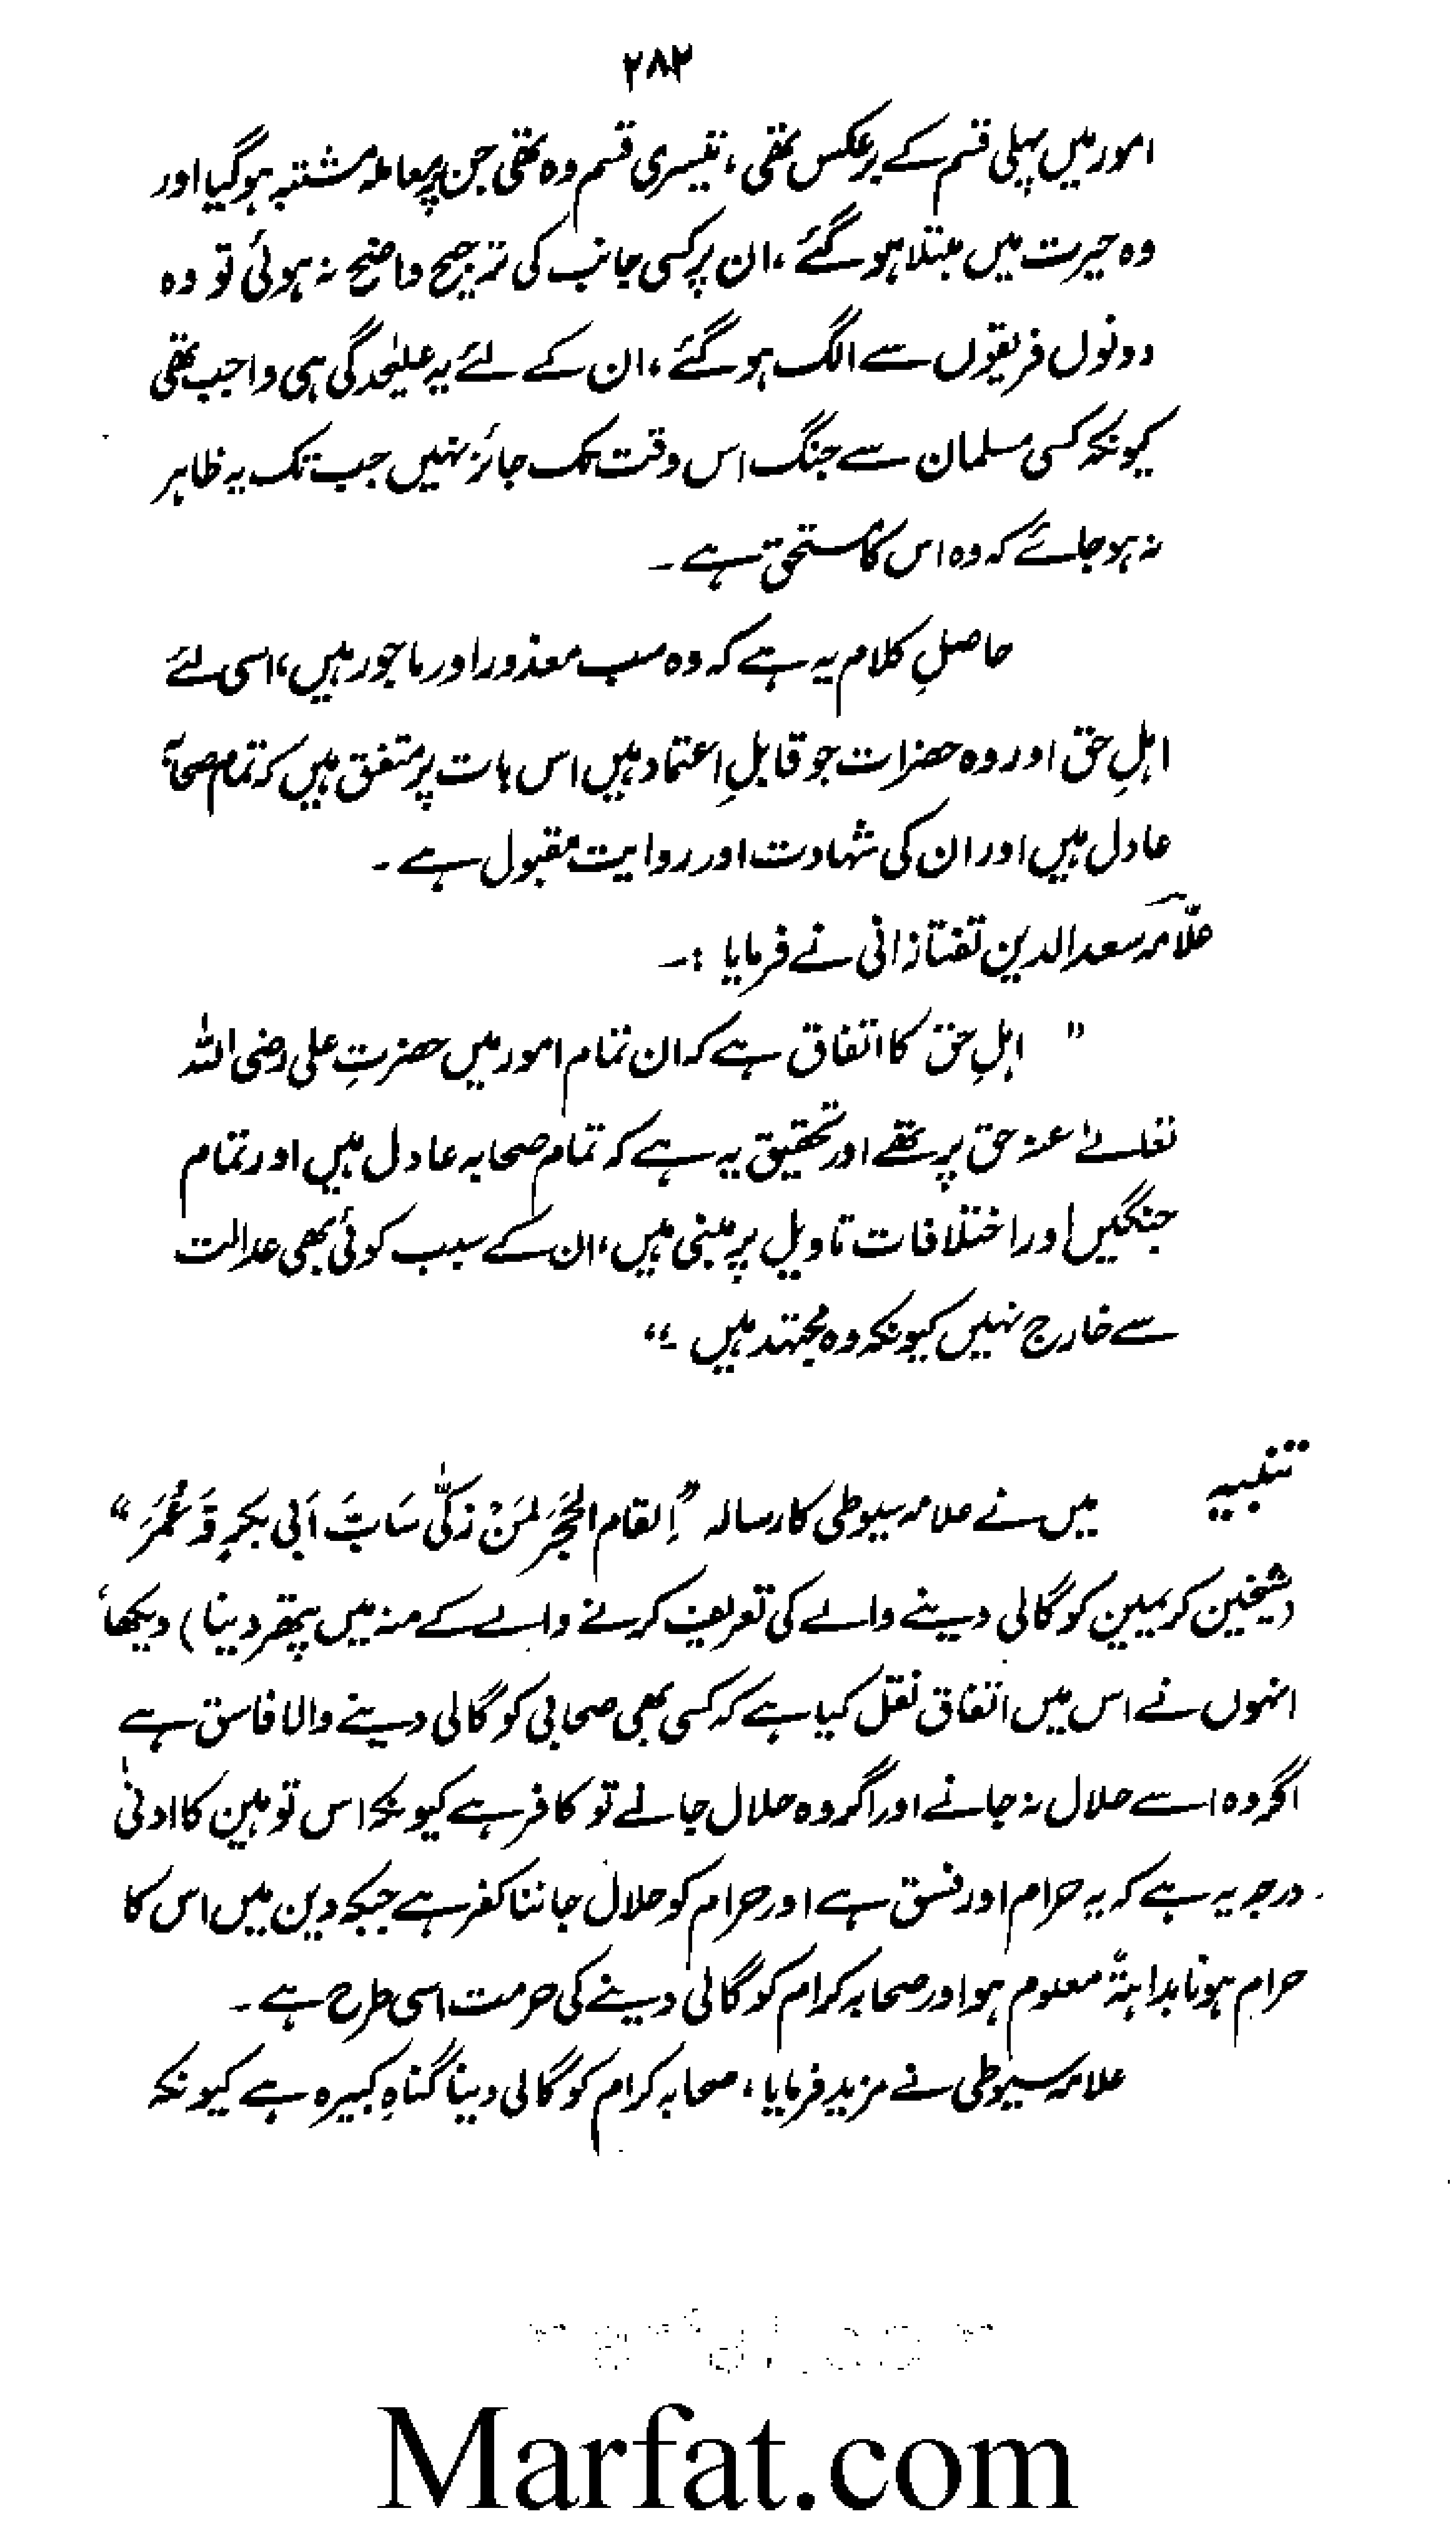 ۲۸۲
امور میں پہلی قسم کے برعکس تھی، تیسری قسم وہ تھی جن پر معاملہ مشتبہ ہوگیا اور
وہ حیرت میں مبتلا ہوگئے، ان پر کسی جانب کی ترجیح واضح نہ ہوئی تو وہ
دونوں فریقوں سے الگ ہوگئے، ان کے لئے یہ علیٰحدگی ہی واجب تھی
کیونکہ کسی مسلمان سے جنگ اس وقت تک جائز نہیں جب تک یہ ظاہر
نہ ہوجائے کہ وہ اس کا مستحق ہے۔
حاصلِ کلام یہ ہے کہ وہ سب معذور اور ماجور ہیں، اسی لئے
اہلِ حق اور وہ حضرات جو قابلِ اعتماد ہیں اس بات پر متفق ہیں کہ تمام صحابہ
عادل ہیں اور ان کی شہادت اور روایت مقبول ہے۔
علّامہ سعدالدین تفتازانی نے فرمایا :۔
" اہلِ حق کا اتفاق ہے کہ ان تمام امور میں حضرتِ علی رضی اللہ
تعالےٰ عنہ حق پر تھے اور تحقیق یہ ہے کہ تمام صحابہ عادل ہیں اور تمام
جنگیں اور اختلافات تاویل پر مبنی ہیں، ان کے سبب کوئی بھی عدالت
سے خارج نہیں کیونکہ وہ مجتہد ہیں۔"
تنبیہ میں نے علامہ سیوطی کا رسالہ "اِلقام الحَجَر لمَنْ زکّٰی سَابَّ اَبی بکرٍ وَّ عُمَرَ"
(شیخین کریمین کو گالی دینے والے کی تعریف کرنے والے کے منہ میں پتھر دینا) دیکھا،
انہوں نے اس میں اتفاق نقل کیا ہے کہ کسی بھی صحابی کو گالی دینے والا فاسق ہے
اگر وہ اسے حلال نہ جانے اور اگر وہ حلال جانے تو کافر ہے کیونکہ اس توہین کا ادنیٰ
درجہ یہ ہے کہ یہ حرام اور فسق ہے اور حرام کو حلال جاننا کفر ہے جبکہ دین میں اس کا
حرام ہونا بداہۃً معلوم ہو اور صحابہ کرام کو گالی دینے کی حرمت اسی طرح ہے۔
علامہ سیوطی نے مزید فرمایا، صحابہ کرام کو گالی دینا گناہِ کبیرہ ہے کیونکہ
Marfat.com